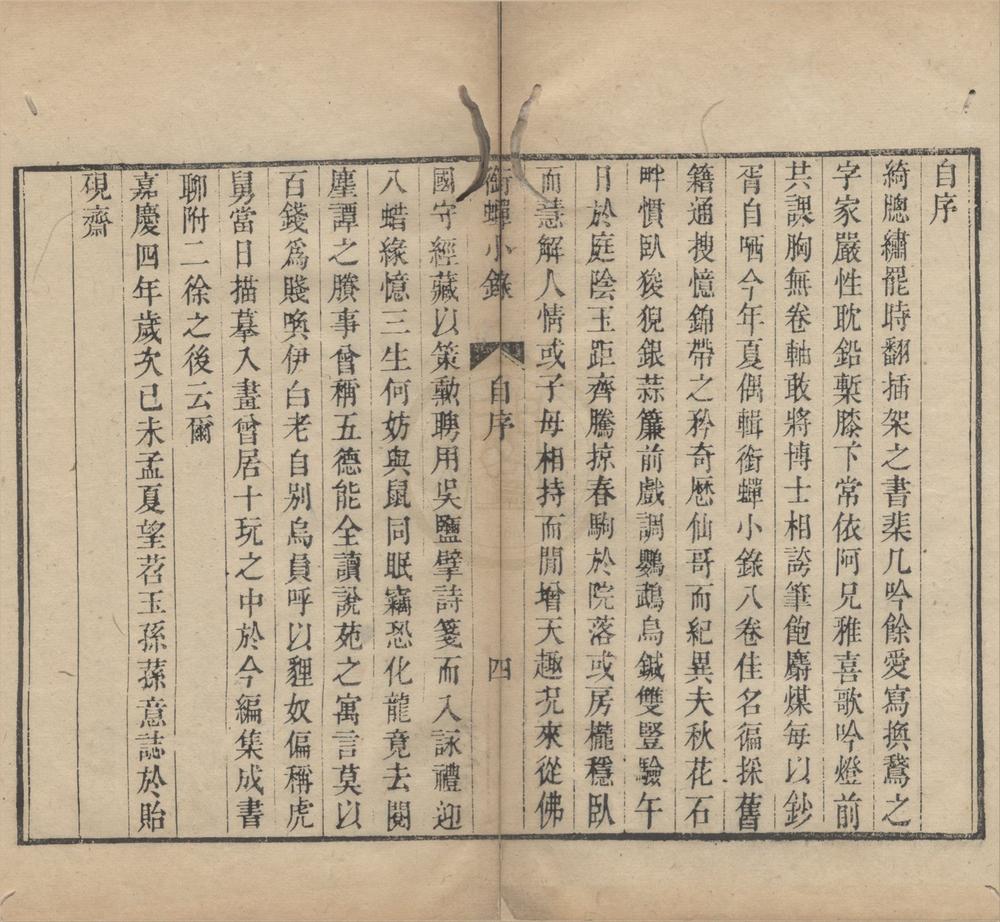 自序
綺牕繡罷時翻插架之書棐几吟餘愛寫換鵞之
字家嚴性耽鉛槧膝下常依阿兄雅喜歌吟燈前
共課胸無卷軸敢將博士相誇筆飽麝煤每以鈔
胥自哂今年夏偶輯銜蟬小錄八卷佳名徧採舊
籍通搜憶錦帶之矜奇厯仙哥而紀異夫秋花石
畔慣臥狻猊銀蒜簾前戲調鸚鵡烏鍼雙豎驗午
日於庭陰玉距齊騰掠春駒於院落或房櫳穩臥
而慧解人情或子母相持而閒增天趣況來從佛
銜蟬小錄 自序 四
國守經藏以策勳聘用吳鹽擘詩箋而入詠禮迎
八蜡緣憶三生何妨與鼠同眠竊恐化龍竟去閱
塵譚之賸事曾稱五德能全讀說苑之寓言莫以
百錢爲賤喚伊白老自別烏員呼以貍奴偏稱虎
舅當日描摹入畫曾居十玩之中於今編集成書
聊附二徐之後云爾
嘉慶四年歲次己未孟夏望苕玉孫蓀意誌於貽
硯齋